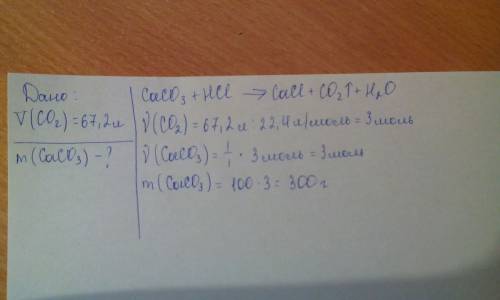 Дано:
V(CO₂) = 67,2 л
m(CaCO₃) - ?
CaCO₃ + HCl → CaCl + CO₂↑ + H₂O
ν(CO₂) = 67,2 л : 22,4 л/моль = 3 моль
ν(CaCO₃) = 1/1 · 3 моль = 3 моль
m(CaCO₃) = 100 · 3 = 300 г